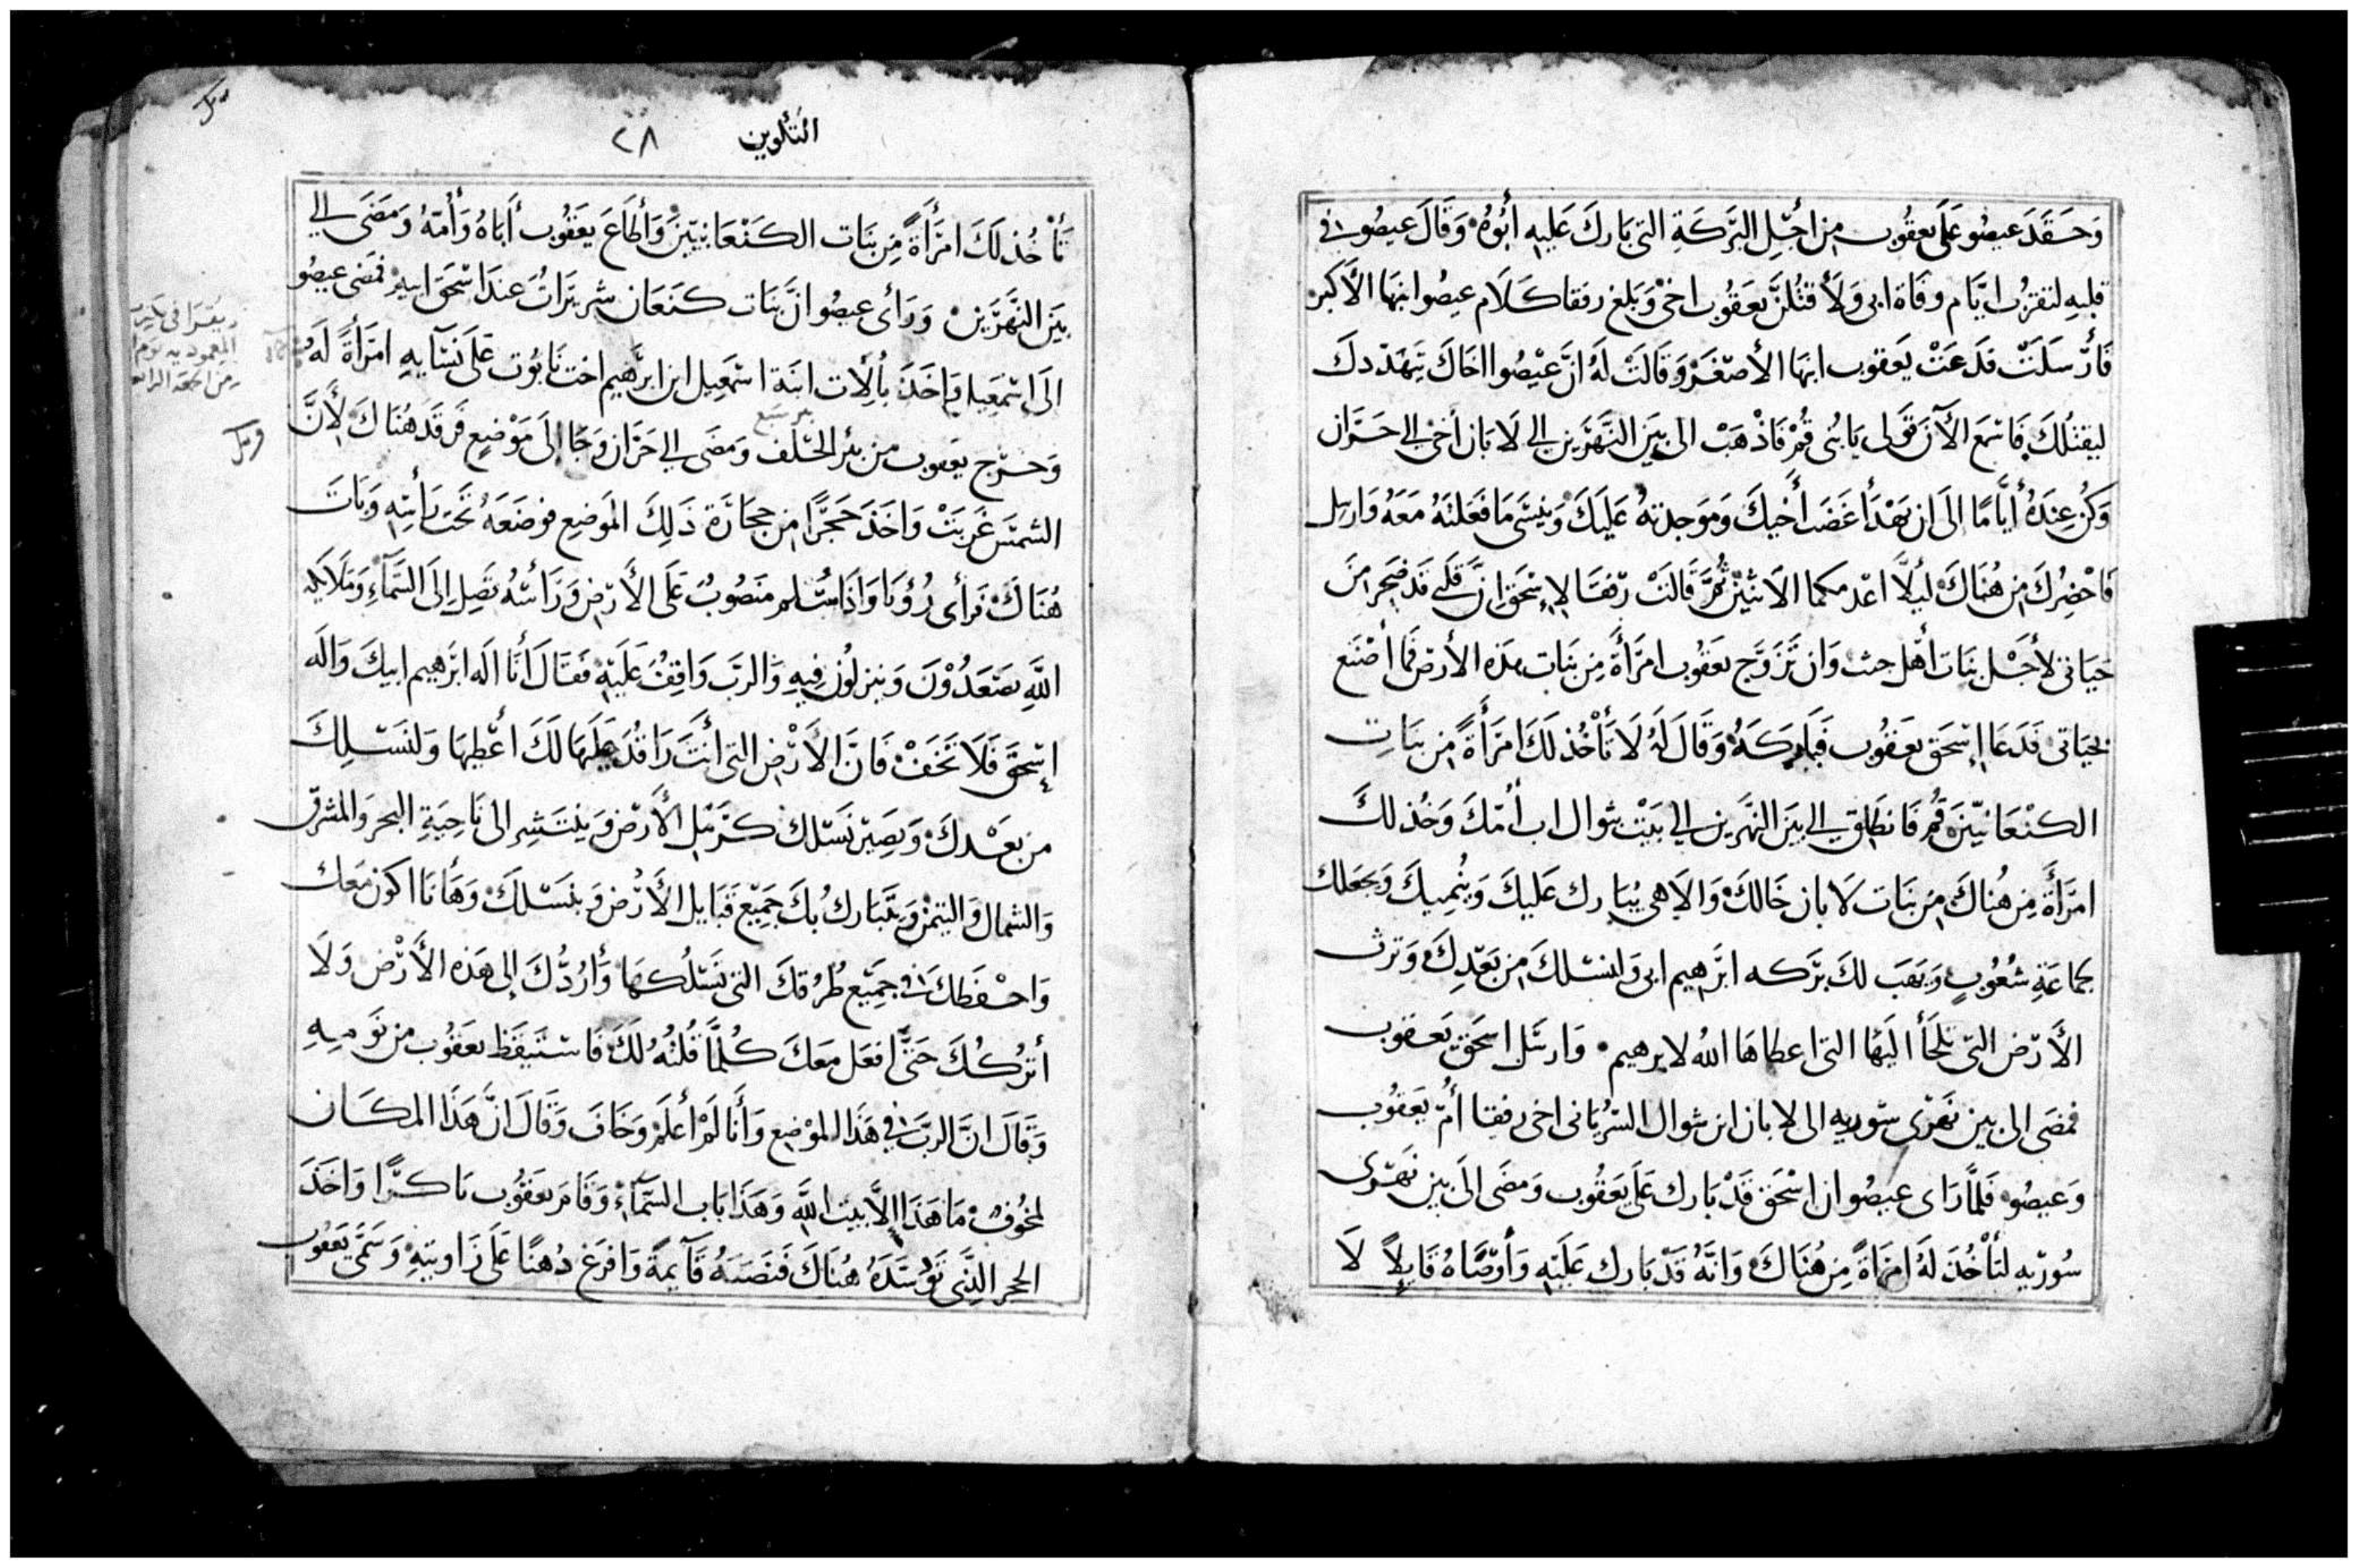 وَحَقَدَ عيصُو عَلَى يعقُوب من اجْلِ البَرَكَةِ التى بَارك عَليهِ أبُوهُ وَقَالَ عيصُو فى
قلبِهِ لتقرُب ايّام وفَاة ابى وَلأقتُلنَّ يعَقُوب اخى وَبَلغ رفقا كَلَام عيصُو ابنهَا الأكبر
فَأرْسَلَتْ فدَعَتْ يَعقوب ابنهَا الأصْغَرْ وَقَالَتْ لَهُ انَّ عيْصُوا اخَاكَ يتهَدّدكَ
ليقتُلكَ فَاسمع الآنَ قَولى يَا بُنى قُمْ فَاذْهَبْ الى بيَن النَّهَرَين الى لَابَان أخى الى حَرَّان
وَكُن عِندَهُ أيَّامًا إلَى ان يَهْدَأ غَضَب أَخيكَ وَمَوَجدتهُ عَليَكَ وَينسَى مَا فَعَلتَهُ مَعَهُ وَارسِل
فَاحْضِرُكَ مِن هُنَاكَ ليلَّا اعْدمكما الاثنيْن ثُمَّ قَالَتْ رِفقَا لإسْحَق إنَّ قلبى قَد ضَجِر مِنَ
حَيَاتى لأجْل بنَات أهْل حث وَان تَزَوَّج يعَقُوب امرَأَةً مِن بنَات هذه الأرض فَما أصْنَع
بحَيَاتى فَدَعَا إسْحَق يعَقُوب فَبَارَكَهُ وَقَالَ لَهُ لَا تَأْخُذ لكَ امرَأَةً من بنَاتِ
الكنْعَانيّينَ قُمْ فَانطَلِق الى بيَن النهَرين الى بَيْتِ بثوال اب أُمّكَ وَخُذ لكَ
امرَأَةً مِن هُنَاكَ من بنَات لَابان خَالكَ وَالاهى يُبَارك عَليكَ وَيُنْمِيكَ وَيجعَلك
لجماعَةِ شُعُوبٍ وَيَهَب لكَ بَركه ابرَهيم ابى وَلنسْلكَ مِن بَعْدِكَ وَترث
الأَرْض التى تلجَأ اليَها التى اعطاهَا اللهُ لابرهيم وَارسَل اسحَق يَعقوب
فمضَى الى بين نهَرى سُوريه الى لابان ابن ثوال السُرْيَانى اخى رفقا أُمّ يعَقُوب
وَعيصُو فَلمَّا رَاى عيصُو ان اسْحَق قَدْ بَارك عَلَى يَعقُوب وَمضَى الَى بين نهَرَى
سُوريه ليَأْخُذ لَهُ امرَاةً مِن هُنَاكَ وَانَّهُ قَدْ بَارك عَلَيْهِ وَأوصَّاهُ قَايِلًا لَا
٢٨
تَأْخُذ لكَ امرَأَةً مِن بنَات الكَنْعَانيّينَ وَأطَاعَ يعَقُوب أبَاهُ وَأُمّهُ وَمَضَى الى
بيَن النَّهَرَين وَرَأى عيصُو انَّ بنَات كَنعَان شريرَاتُ عندَ اسْحَق ابيه فمَضى عيصُو
الَى إسْمَعيل وَاخَذَ بألِات ابنَة اسْمَعِيل ابن ابرَهيم اخت نَابُوت عَلَى نسَآيهِ امرَأةً لَهُ
وَخَرَج يعَقوب من بئر الحَلف وَمَضَى الى حَرّان وَجَا إلَى مَوْضِعٍ فَرقَدَ هُنَاكَ لأَنَّ
بير سبع
الشمْسَ غَربَتْ وَاخَذَ حَجَرًا من حِجَارَة ذَلِكَ الموَضِع فوضَعَهُ تَحت رَأسِهِ وَبَاتَ
هُنَاكَ فَرأى رُؤيَا وَاذَا بسُلم منَصُوبُ عَلَى الأَرْض وَرَأسُهُ يَصِل إلَى السَّمَآءِ وَمَلَايكة
اللَّهِ يصَعَدُوْنَ وَينزلُون فِيهِ وَالربّ وَاقِفُ عَليَهِ فقَالَ أنَا الَه ابرَهيم ابيكَ وَالَه
إسْحَقَ فَلَا تَخَفْ فَانَّ الأَرْض التى أنتَ رَاقدُ عليَهَا لَكَ أعْطِهَا وَلنسْلكَ
من بعَدكَ وَيصِير نَسْلك كَرَمْل الأَرْض وَينتَشِر إلى نَاحِيَةِ البحر وَالمشرق
وَالشمال وَالتيمْن وَيتَبَارك بُكَ جَميْع قبَايل الأَرْض وَبنَسْلكَ وَهَأنَا اكون معَكَ
وَاحفَظكَ فى جَميْع طُرُقكَ التى تسْلُكهَا وَأرُدُّكَ إلى هَذه الأَرْض وَلَا
أترُكُكَ حَتَّى افعَل معَكَ كُلمَّا قُلتُهُ لَكَ فَاسْتيَقَظ يعَقُوب من نَومِهِ
وَقَالَ انَّ الربّ فى هَذَا الموْضِع وَأنَا لَمْ أعْلَمْ وَخَافَ وَقَالَ انَّ هَذَا المكَان
لمخُوف مَا هَذَا إلَّا بيَت اللَّهِ وَهَذَا بَاب السَّمَآءِ وَقَامَ يعَقُوب بَاكرًا وَاخَذَ
الحجر الذى تَوسَّدَهُ هُنَاكَ فنَصَبَهُ قَآيمةً وَافرَغ دُهنًا عَلَى زَاويتِهِ وَسَمَّى يَعَقُوب